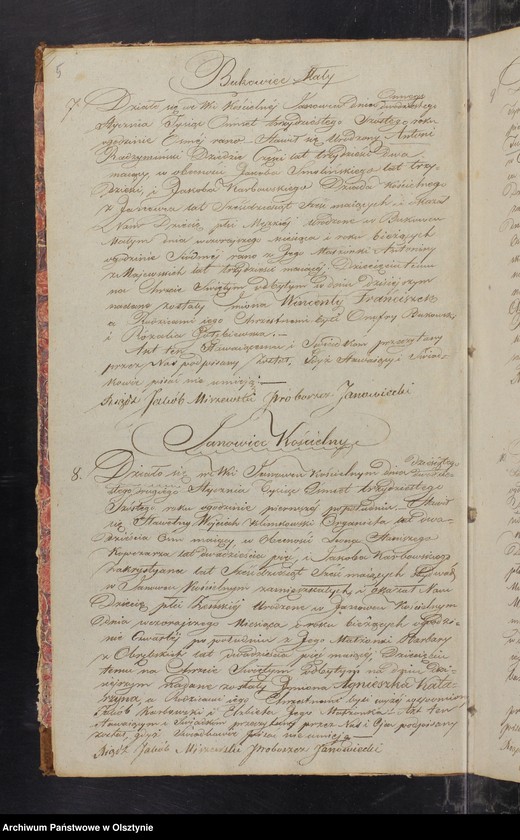 5
Bukowiec Mały
7. Działo się we Wsi Kościelnej Janowiec dnia
Stycznia Tysiąc Ośmset trzydziestego Szostego roku
ogodzinie rano Stawił się Urodzony Antoni
Radzymiński Dziedzic Części lat trzydzieści dwa
maiący, w obecności Jakoba Smolińskiego lat trzy-
dzieści, i Jakoba Karbowskiego Dziada kościelnego
z Janowca lat Sześćdziesiąt Sześć maiących i okazał
Nam Dziecię płci Męzkiej urodzone w Bukowcu
Małym dnia wczorayszego miesiąca i roku bieżących
ogodzinie Siodmej rano z Jego Małżonki Antoniny
z Majewskich lat trzydzieści maiącej. Dziecięciu temu
na Chrzcie Świętym odbytym w dniu Dzisiejszym
nadane zostały Imiona Wincenty Franciszek
a Rodzicami iego Chrzestnemi byli Onufry Bukowski
i Rozalia
Akt ten Stawaiącemu i Świadkom przeczytany
przez Nas podpisany został, Gdyż Stawaiący i Świad-
kowie pisać nie umieją.
Xiądz Jakób Mirzewski Proboszcz Janowiecki
Janowiec Kościelny
8. Działo się w Wsi Janowcu Kościelnym dnia
Stycznia Tysiąc Ośmset trzydziestego
Szostego roku ogodzinie pierwszej popołudniu. Stawił
się Sławetny Woyciech Klimkowski Organista lat dwa-
dzieścia Ośm maiący w Obecności
lat dwadzieścia pięć, i Jakoba Karbowskiego
Zakrystyana lat Sześćdziesiąt Sześć maiących
w Janowcu Kościelnym zamieszkałych i okazał Nam
Dziecię płci Żeńskiej Urodzone w Janowcu Kościelnym
dnia wczorayszego Miesiąca i roku bieżących ogodzi-
nie Czwartej po południu z Jego Małżonki Barbary
z lat dwadzieścia pięć maiącej, Dziecięciu
temu na Chrzcie Świętym odbytym w dniu Dzi-
sieyszym nadane zostały Imiona Agnieszka Kata-
rzyna, a Rodzicami iego Chrzestnemi byli wyżej wspomniony
Jakób Karbowski i Elżbieta Jego Małżonka. Akt ten
Stawaiącym i Świadkom przeczytany przez Nas i podpisany
został, gdyż Świadkowie pisać nie umieją.
Xiądz Jakób Mirzewski Proboszcz Janowiecki
Archiwum Państwowe w Olsztynie